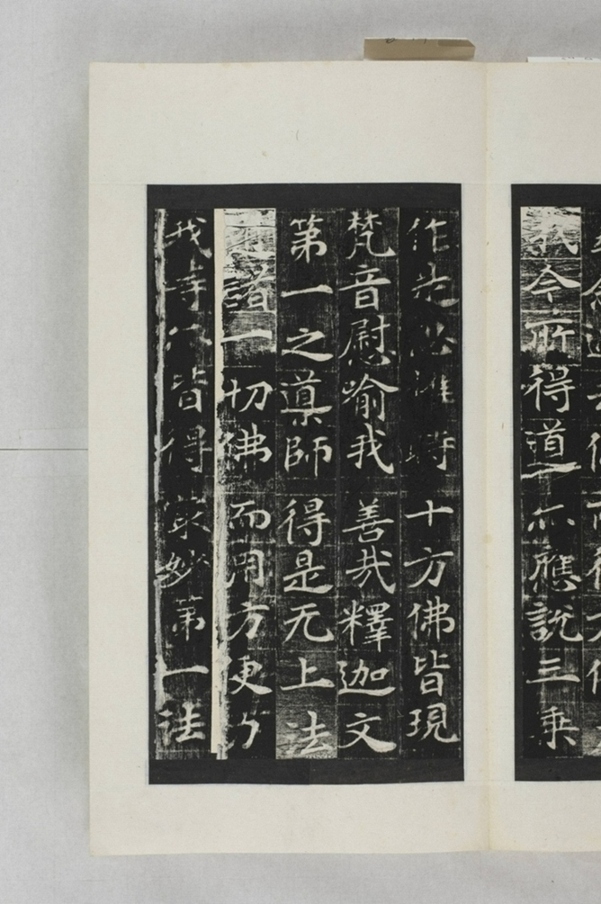 我今所得道亦應說三乘
作是思惟時十方佛皆現
梵音慰喻我善哉釋迦文
第一之導師得是无上法
諸一切佛而用方便力
我等亦皆得最妙第一法